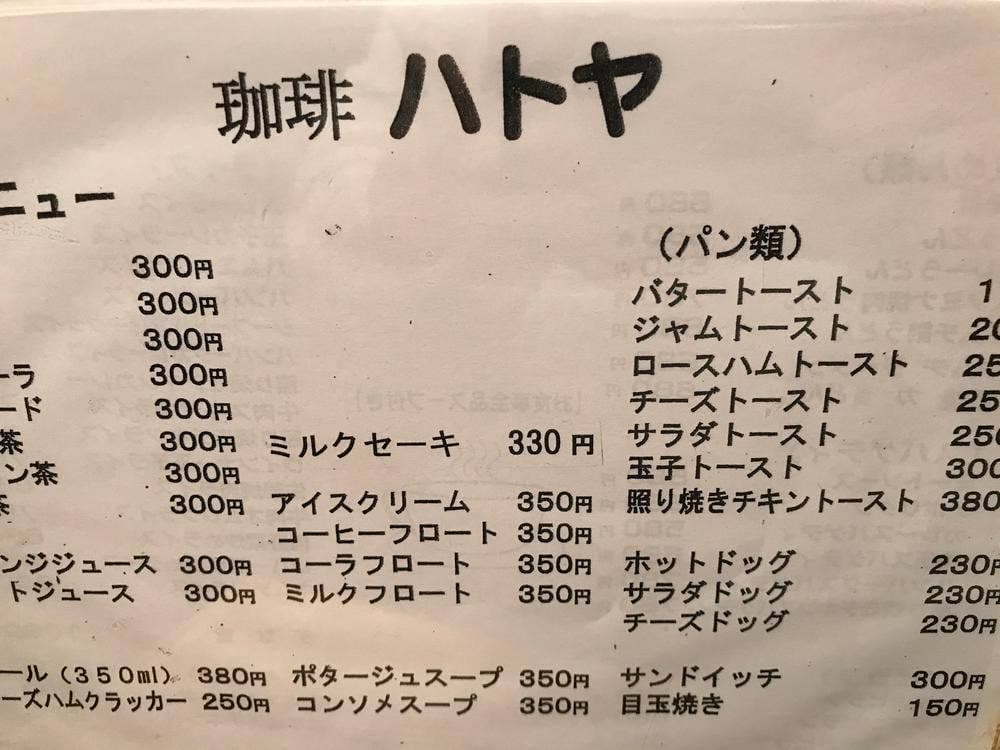 珈琲 ハトヤ
ニュー
300円
300円
300円
ーラ 300円
ード 300円
茶 300円
ン茶 300円
茶 300円
ンジジュース 300円
トジュース 300円
ール(350ml) 380円
ーズハムクラッカー 250円
ミルクセーキ 330円
アイスクリーム 350円
コーヒーフロート 350円
コーラフロート 350円
ミルクフロート 350円
ポタージュスープ 350円
コンソメスープ 350円
(パン類)
バタートースト 1
ジャムトースト 20
ロースハムトースト 25
チーズトースト 25
サラダトースト 250
玉子トースト 300
照り焼きチキントースト 380
ホットドッグ 230円
サラダドッグ 230円
チーズドッグ 230円
サンドイッチ 300円
目玉焼き 150円